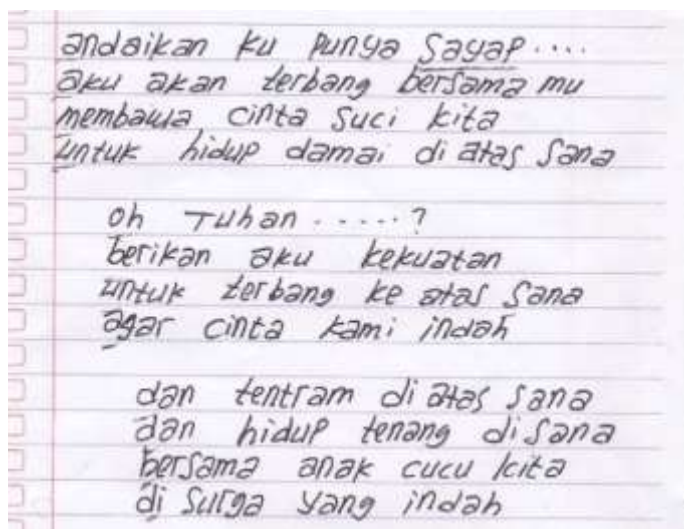 andaikan ku punya sayap....
aku akan terbang bersama mu
membawa cinta suci kita
untuk hidup damai di atas sana
oh Tuhan.....?
berikan aku kekuatan
untuk terbang ke atas sana
agar cinta kami indah
dan tentram di atas sana
dan hidup tenang di sana
bersama anak cucu kita
di surga yang indah